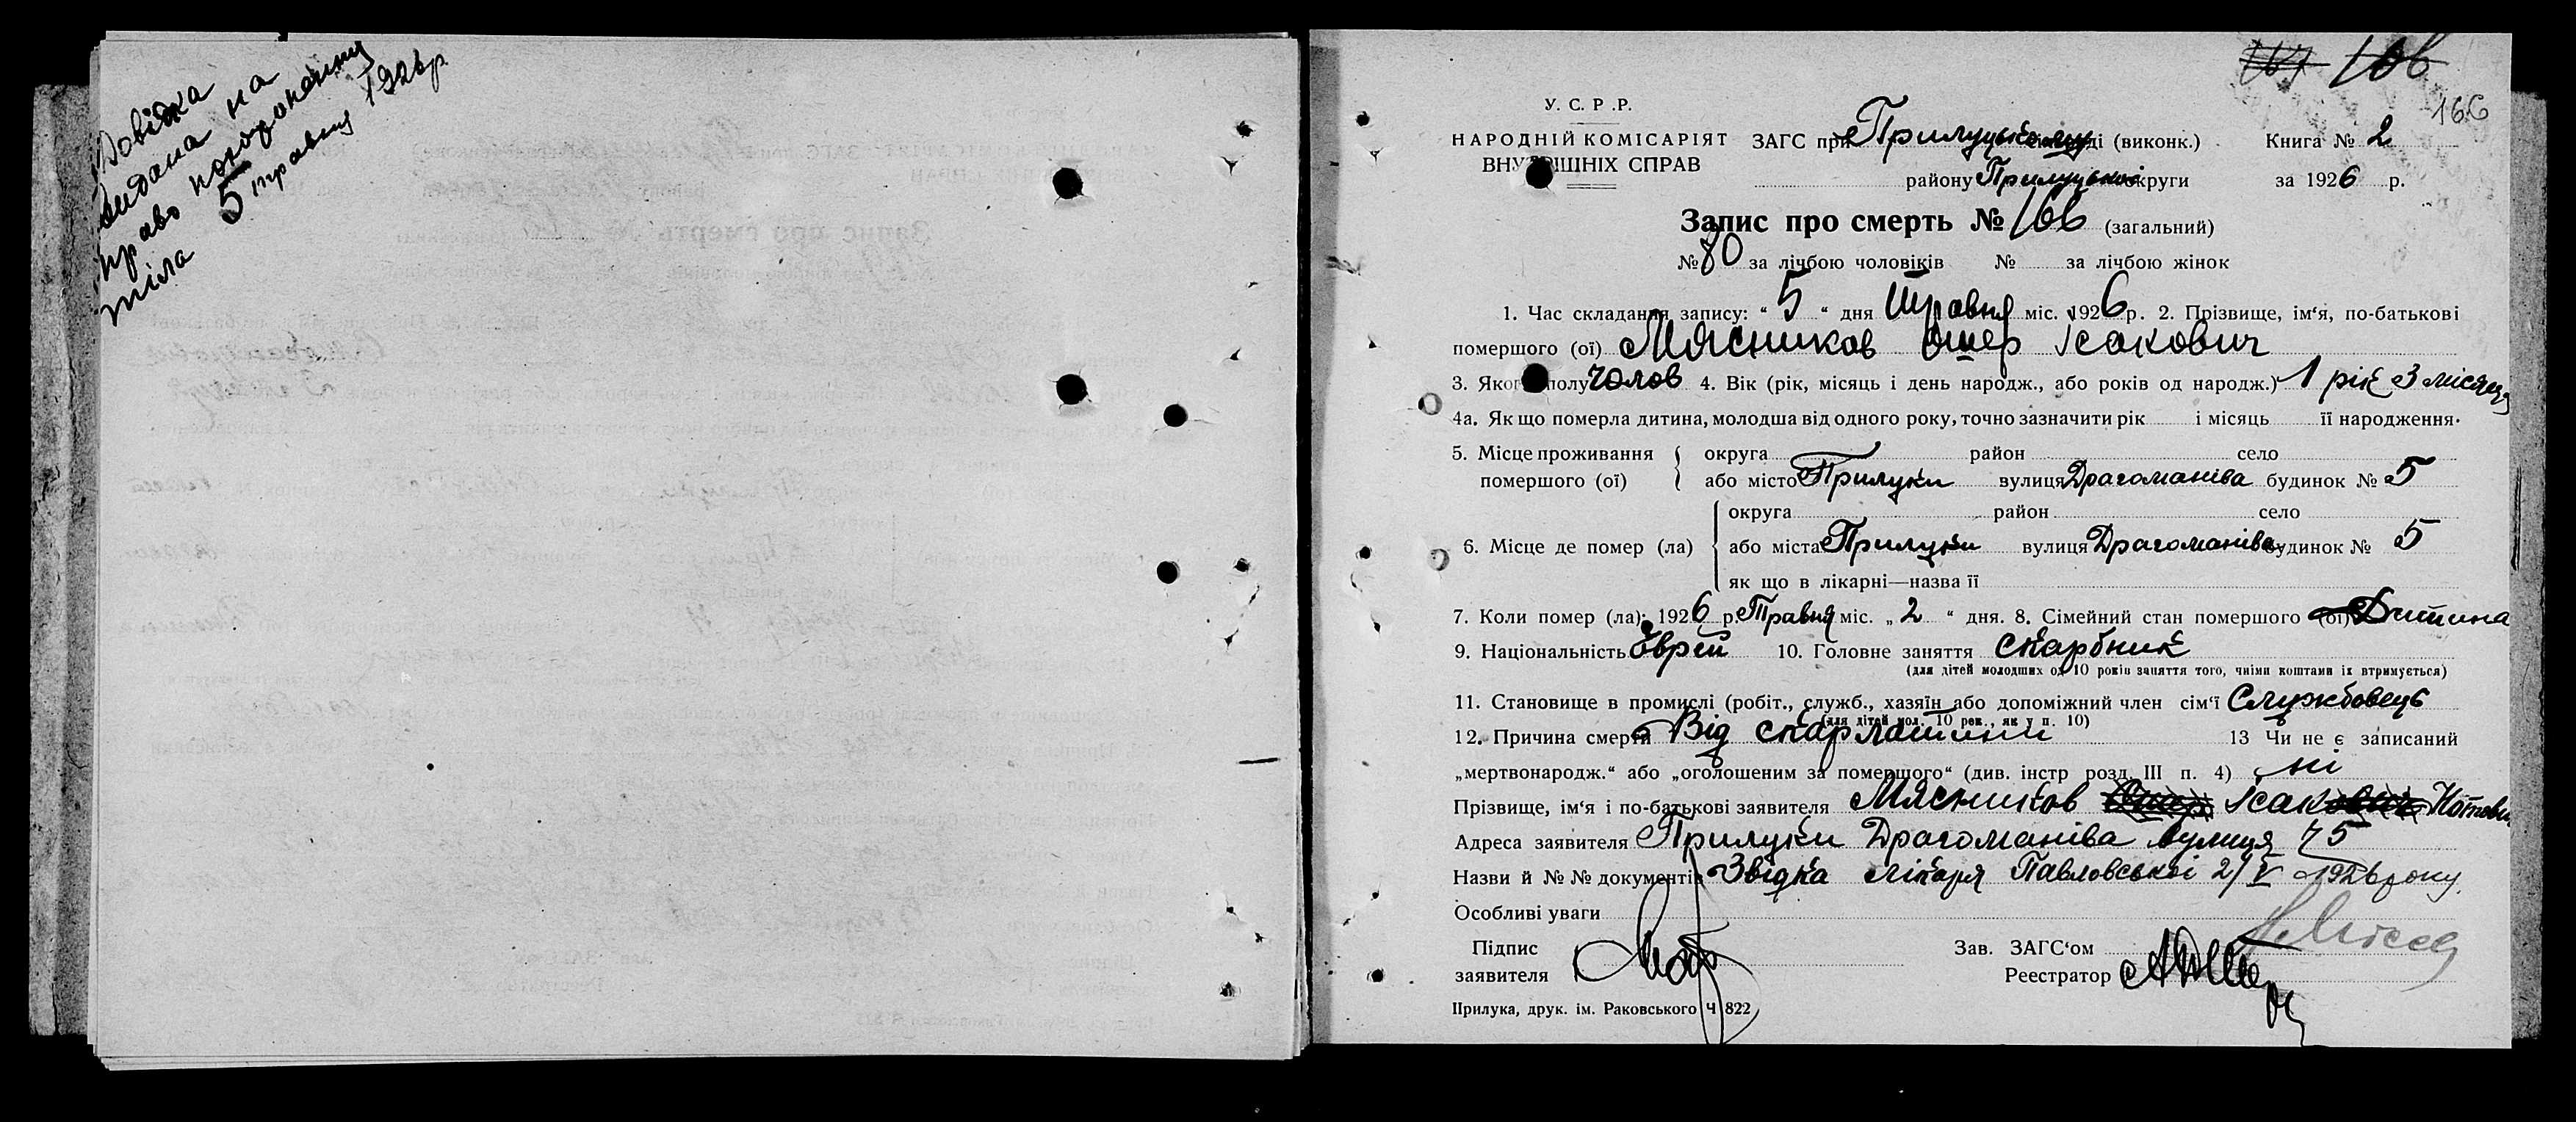 Довідка
видана на
право похоронення
тіла 5 травня 1926р.
166
166
У. С. Р. Р.
НАРОДНІЙ КОМІСАРІЯТ
ВНУТРІШНІХ СПРАВ
ЗАГС при Прилуцькому (виконк.)
району Прилуцької округи
Книга № 2
за 1926 р.
Запис про смерть № 166 (загальний)
№ 80 за лічбою чоловіків № за лічбою жінок
1. Час складання запису: “ 5 “ дня Травня міс. 1926 р. 2. Прізвище, ім‘я, по-батькові
помершого (ої) Мясников Ошер Ісакович
3. Якого полу чолов 4. Вік (рік, місяць і день народж., або років од народж.) 1 рік 3 місяця
4а. Як що померла дитина, молодша від одного року, точно зазначити рік і місяць її народження.
5. Місце проживання помершого (ої)
округа район село
або місто Прилуки вулиця Драгоманіва будинок № 5
6. Місце де помер (ла)
округа район село
або міста Прилуки вулиця Драгоманіва будинок № 5
як що в лікарні—назва її
7. Коли помер (ла): 1926 р. Травня міс. „ 2 “ дня. 8. Сімейний стан помершого (ої) Дитина
9. Національність Єврей 10. Головне заняття скарбник
(для дітей молодших од 10 років заняття того, чиїми коштами їх втримується)
11. Становище в промислі (робіт., служб., хазяїн або допоміжний член сім‘ї Службовець
(для дітей мол. 10 рок., як у п. 10)
12. Причина смерти Від скарлатини 13 Чи не є записаний
„мертвонародж.“ або „оголошеним за помершого“ (див. інстр розд. III п. 4) ні
Прізвище, ім‘я і по-батькові заявителя Мясников Ісак
Адреса заявителя Прилуки Драгоманіва вулиця ч 5
Назви й №№ документів Звідка лікаря Павловської 2/V 1926 року.
Особливі уваги
Підпис
заявителя
Зав. ЗАГС‘ом
Реестратор
Прилука, друк. ім. Раковського Ч 822